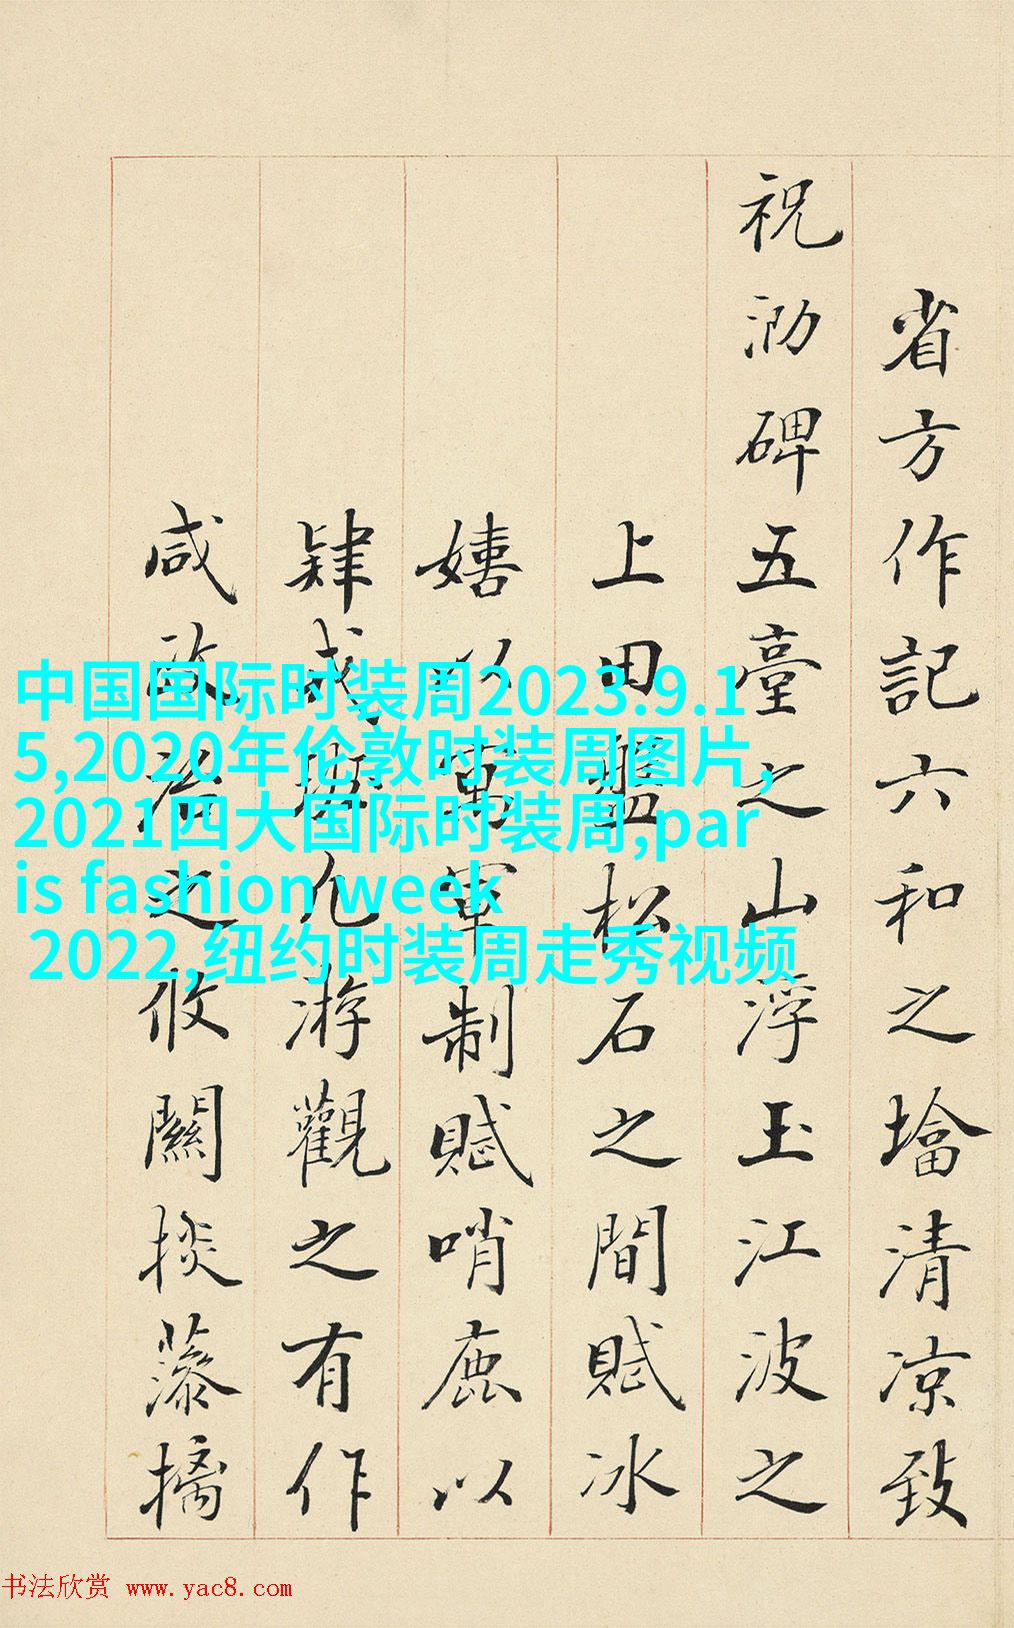 省方作記六和之墖清凉致
祝泐碑五臺之山浮玉江波之
上田盤松石之間賦冰
嬉以萬軍制賦哨鹿以
肄武凡游觀之有作
咸政治之攸關掞藻摛
中国国际时装周2023.9.1
5,2020年伦敦时装周图片,
2021四大国际时装周,par
is fashion week
2022,纽约时装周走秀视频
书法欣赏 www.yac8.com